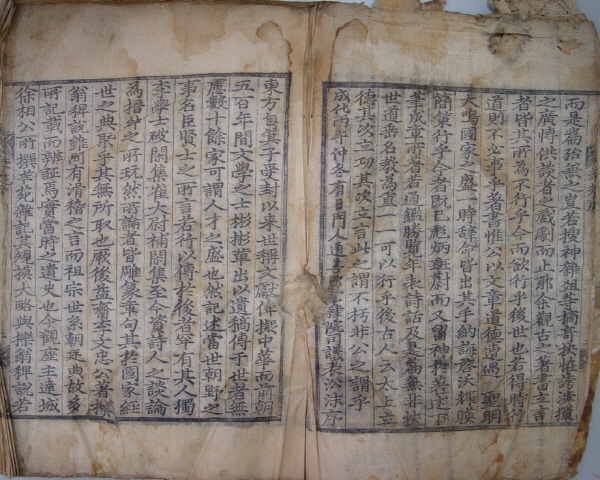 而是篇殆無之豈若搜神雜俎等摘奇抉怪誇涉獵
之廣博供談者之戲劇而止耶余觀古之著書立言
者皆其所爲不行乎今而欲行乎後世也若得時行
道則不必事乎著書惟公以文章道德遭遇聖明
大鳴國家之盛一時辭命皆出其手納誨啓沃
簡策行乎人者旣已彪炳蔚而又留神著述下
筆所著若通鑑勝覽年表詩話及是篇無非扶
世道垂名教爲重一一可以行乎後古人云太上立
德其次立功其次立言此之謂不朽非公之謂乎
成化丙午仲冬有日門人通善隷院司議表沿沫序
東方自箕子受封以來世稱文獻侔擬中華而前朝
五百年間文學之士彬彬輩出以遺稿傳于世者無
慮數十餘家可謂人才之盛也然記述當世朝野之
事名臣賢士之所言若行以傳於後者罕有其人獨
李學士破閑集崔大尉補閑集至今資詩人之談論
爲搢紳之所玩然所論者皆雕篆章句其於國家經
世之典槩乎其無所取也厥後益齋李文忠公著櫟
翁稗說雖所有滑稽之言而祖宗世系朝廷典故多
所記載而辨證焉實當時之遺史也今觀座主達城
徐相公所撰筆苑雜記其規模大略與櫟翁稗說若